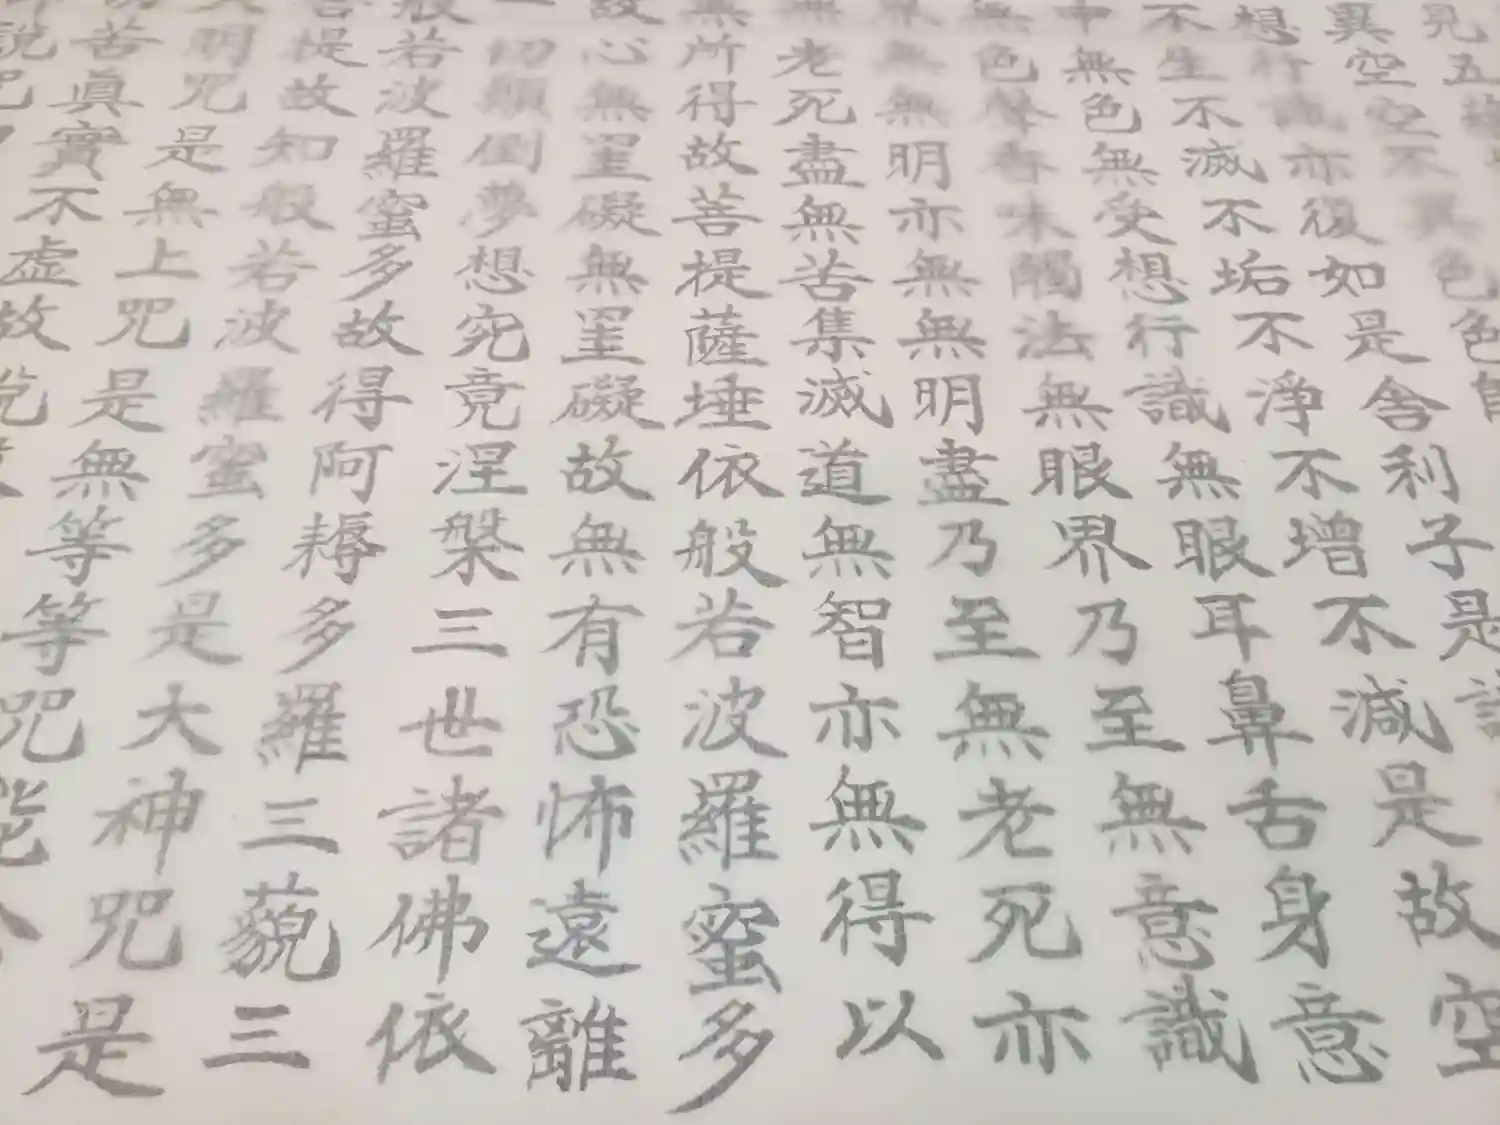 見五
異空空不異色色
想行識亦復如是舍利子是
不生不滅不垢不淨不增不減是故空
中無色無受想行識無眼耳鼻舌身意
無色聲香味觸法無眼界乃至無意識
界無無明亦無無明盡乃至無老死亦
無老死盡無苦集滅道無智亦無得以
無所得故菩提薩埵依般若波羅蜜多
故心無罣礙無罣礙故無有恐怖遠離
一切顛倒夢想究竟涅槃三世諸佛依
般若波羅蜜多故得阿耨多羅三藐三
菩提故知般若波羅蜜多是大神咒是
大明咒是無上咒是無等等咒能
切苦真實不虛故說
說咒